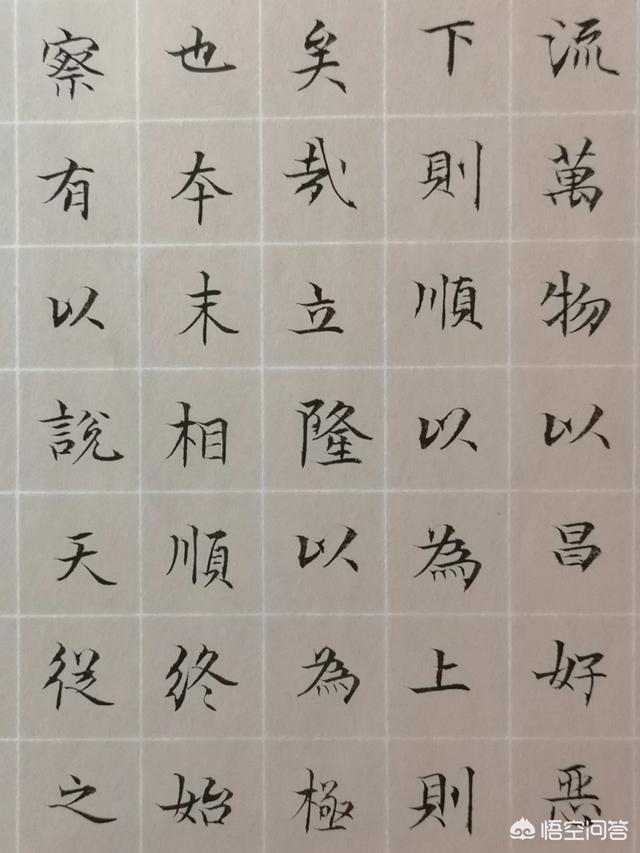 流萬物以昌好惡
下則順以為上則
矣哉立隆以為極
也本末相順終始
察有以說天從之
悟空问答